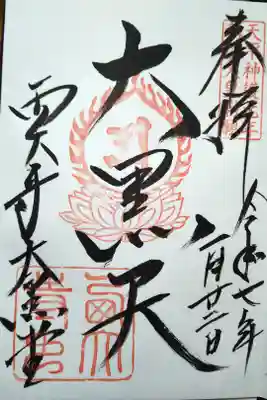 奉拝
令和七年
一月廿二日
大黒天
西大寺大黒堂